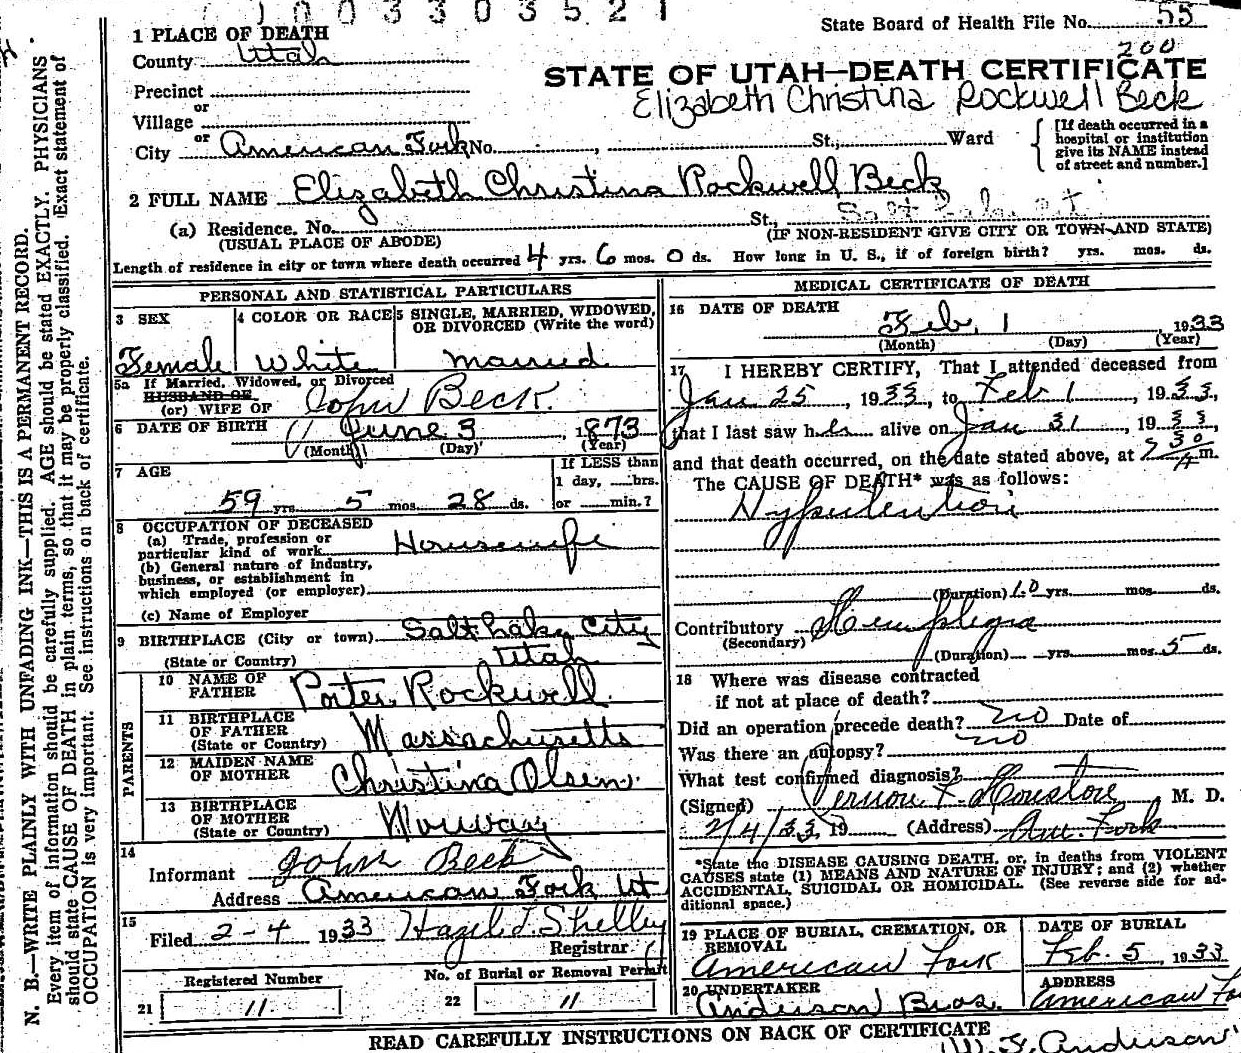 0 0 3 3 0 3 5 2 1
State Board of Health File No. 55
200
1 PLACE OF DEATH
County Utah
STATE OF UTAH—DEATH CERTIFICATE
Elizabeth Christina Rockwell Beck
Precinct
or
Village
or
City American Fork No. , St., Ward
[If death occurred in a hospital or institution give its NAME instead of street and number.]
2 FULL NAME Elizabeth Christina Rockwell Beck
(a) Residence. No. St., Salt Lake
(USUAL PLACE OF ABODE) (IF NON-RESIDENT GIVE CITY OR TOWN AND STATE)
Length of residence in city or town where death occurred 4 yrs. 6 mos. 0 ds. How long in U. S., if of foreign birth? yrs. mos. ds.
PERSONAL AND STATISTICAL PARTICULARS
3 SEX
Female
4 COLOR OR RACE
White
5 SINGLE, MARRIED, WIDOWED, OR DIVORCED (Write the word)
Married
5a If Married, Widowed, or Divorced
HUSBAND OF
(or) WIFE OF John Beck.
6 DATE OF BIRTH June 3, 1873
(Month) (Day) (Year)
7 AGE
59 yrs. 5 mos. 28 ds.
If LESS than
1 day, hrs.
or min.?
8 OCCUPATION OF DECEASED
(a) Trade, profession or
particular kind of work Housewife
(b) General nature of industry,
business, or establishment in
which employed (or employer)
(c) Name of Employer
9 BIRTHPLACE (City or town) Salt Lake City
(State or Country) Utah
PARENTS
10 NAME OF
FATHER Porter Rockwell
11 BIRTHPLACE
OF FATHER
(State or Country) Massachusetts
12 MAIDEN NAME
OF MOTHER Christina Olsen
13 BIRTHPLACE
OF MOTHER
(State or Country) Norway
14
Informant John Beck
Address American Fork Ut
15
Filed 2-4 1933 Hazel J. Shelley
Registrar
Registered Number
21 11
No. of Burial or Removal Permit
22 11
MEDICAL CERTIFICATE OF DEATH
16 DATE OF DEATH
Feb. 1, 1933
(Month) (Day) (Year)
17 I HEREBY CERTIFY, That I attended deceased from
Jan 25, 1933, to Feb 1, 1933,
that I last saw her alive on Jan 31, 1933,
and that death occurred, on the date stated above, at 7 30 A m.
The CAUSE OF DEATH* was as follows:
Hypertention
(Duration) 10 yrs. mos. ds.
Contributory Hemiplegia
(Secondary)
(Duration) yrs. mos. 5 ds.
18 Where was disease contracted
if not at place of death?
Did an operation precede death? no Date of
Was there an autopsy? no
What test confirmed diagnosis?
(Signed) Vernon F. Houston, M. D.
2/4/33, 19 (Address) Am. Fork
*State the DISEASE CAUSING DEATH, or, in deaths from VIOLENT
CAUSES state (1) MEANS AND NATURE OF INJURY; and (2) whether
ACCIDENTAL, SUICIDAL OR HOMICIDAL. (See reverse side for ad-
ditional space.)
19 PLACE OF BURIAL, CREMATION, OR
REMOVAL
American Fork
DATE OF BURIAL
Feb. 5, 1933
20 UNDERTAKER
Anderson Bros.
ADDRESS
American Fo
READ CAREFULLY INSTRUCTIONS ON BACK OF CERTIFICATE
Anderson
N. B.—WRITE PLAINLY WITH UNFADING INK—THIS IS A PERMANENT RECORD.
Every item of information should be carefully supplied. AGE should be stated EXACTLY. PHYSICIANS
should state CAUSE OF DEATH in plain terms, so that it may be properly classified. Exact statement of
OCCUPATION is very important. See instructions on back of certificate.